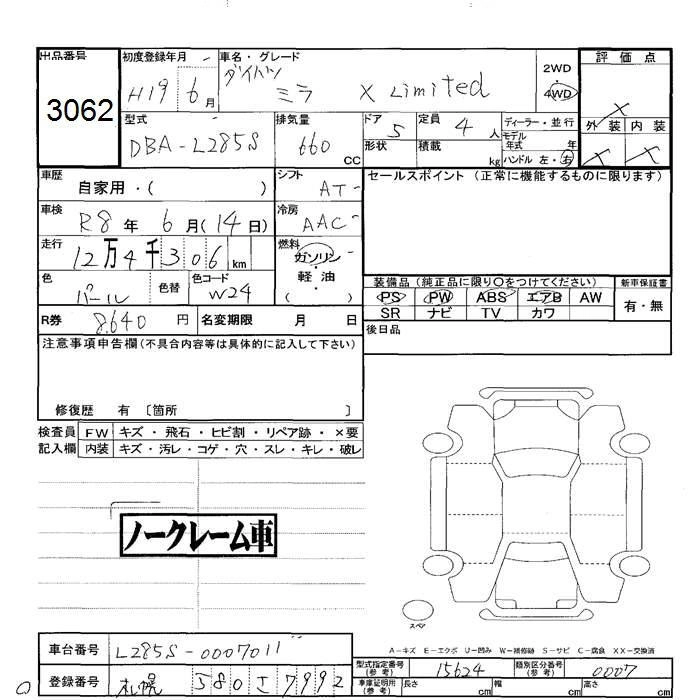 出品番号
3062
初度登録年月
H19 6月
車名・グレード
ダイハツ
ミラ X Limited
2WD
4WD
評価点
×
外装 内装
× ×
型式
DBA-L285S
排気量
660 CC
ドア 5
形状
定員 4人
積載 kg
ディーラー・並行
モデル年式 年
ハンドル 左・右
車歴
自家用・( )
シフト
AT
車検
R8年 6月(14日)
冷房
AAC
走行
12万4千306km
燃料
ガソリン
軽油
( )
色
パール
色替
色コード
W24
R券 8,640円
名変期限 月 日
セールスポイント (正常に機能するものに限ります)
装備品 (純正品に限り○をつけてください)
PS PW ABS エアB AW
SR ナビ TV カワ
新車保証書
有・無
後日品
注意事項申告欄(不具合内容等は具体的に記入して下さい)
修復歴 有 〔箇所 〕
検査員記入欄
FW キズ・飛石・ヒビ割・リペア跡・×要
内装 キズ・汚レ・コゲ・穴・スレ・キレ・破レ
ノークレーム車
スペア
A-キズ E-エクボ U-凹み W-補修跡 S-サビ C-腐食 XX-交換済
車台番号 L285S-0007011
登録番号 札幌 580 さ 7992
型式指定番号(参考) 15624
類別区分番号(参考) 0007
車庫証明用(参考) 長さ cm 幅 cm 高さ cm